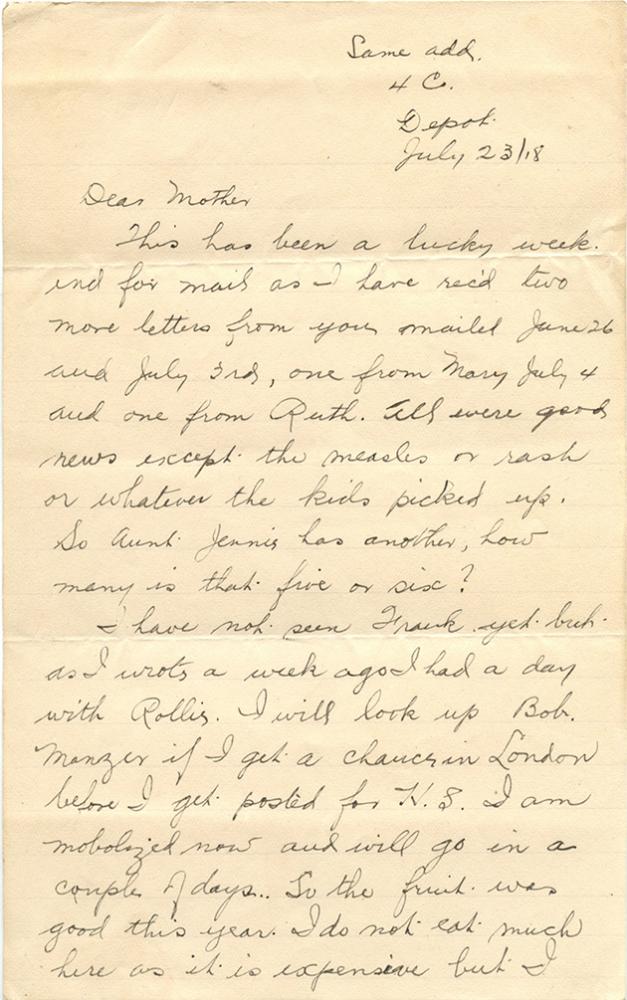 Same add.
4 C.
Depot.
July 23/18
Dear Mother
This has been a lucky week.
end for mail as I have rec'd two
more letters from you mailed June 26
and July 3rd, one from Mary July 4
and one from Ruth. All were good
news except the measles or rash
or whatever the kids picked up.
So Aunt Jennie has another, how
many is that five or six?
I have not seen Frank yet but
as I wrote a week ago I had a day
with Rollie. I will look up Bob.
Manzer if I get a chance in London
before I get posted for H.S. I am
mobolized now and will go in a
couple of days.. So the fruit was
good this year. I do not eat much
here as it is expensive but I